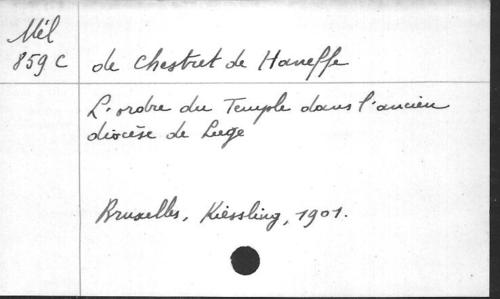 Mél
859 C de Chestret de Haneffe
L'ordre du Temple dans l'ancien
diocèse de Liege
Bruxelles, Kiessling, 1901.